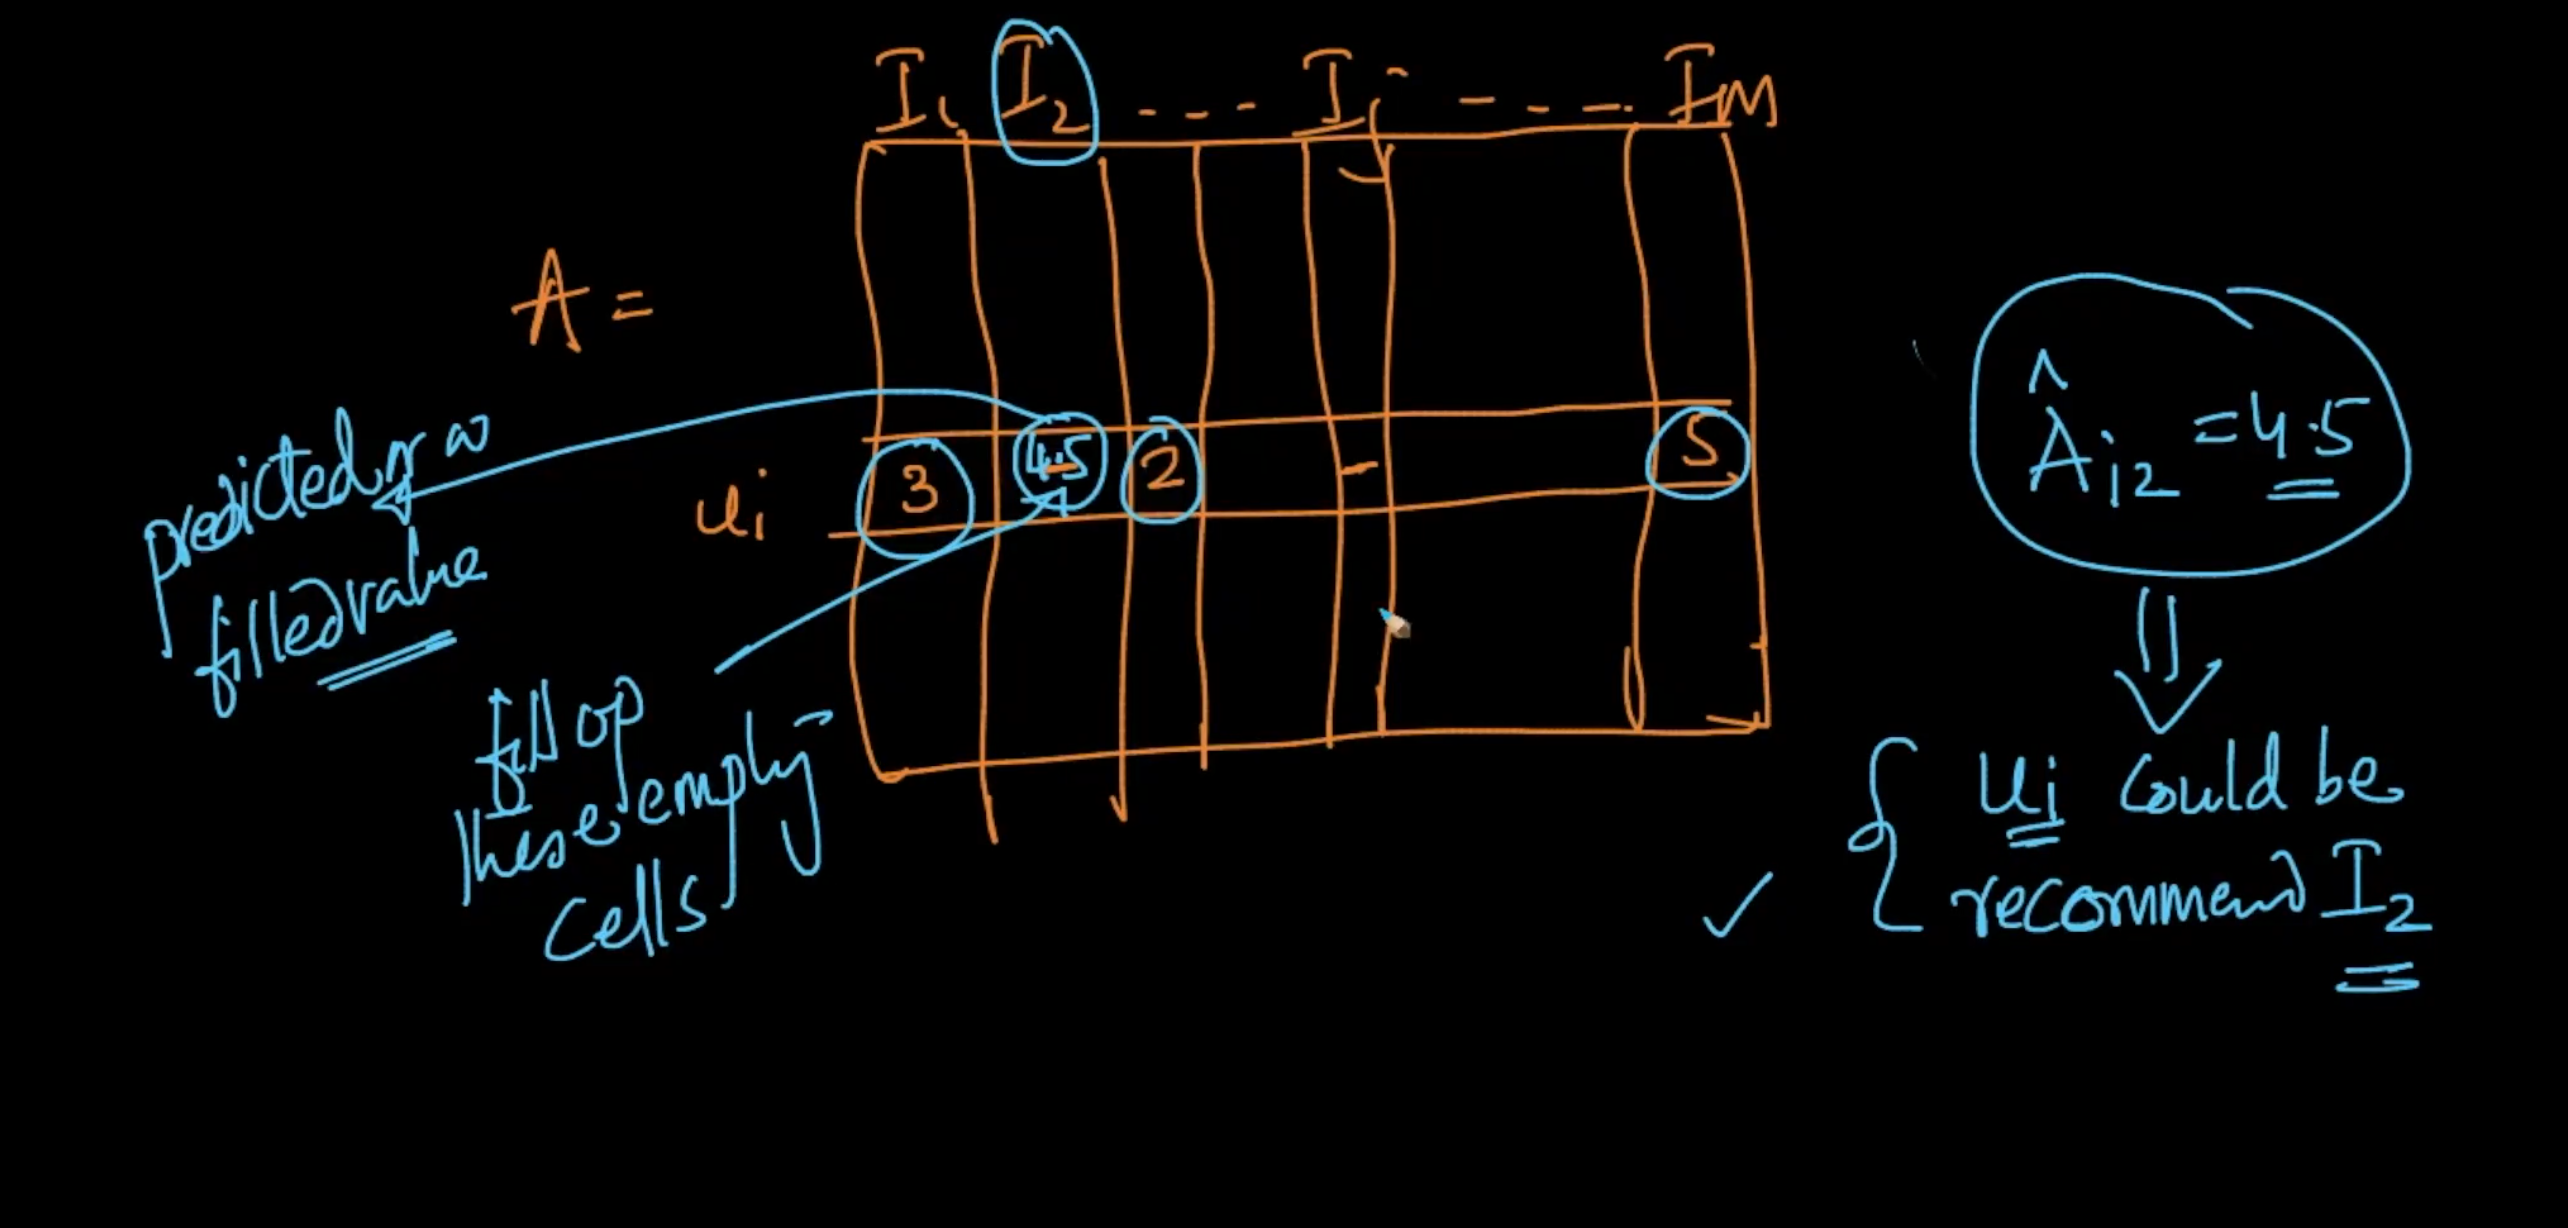 I1 I2 - - - Ij - - - - IM
A =
ui 3 4.5 2 - 5
predicted or
filled value
fill up
these empty
cells
Âi2 = 4.5
ui could be
recommend I2